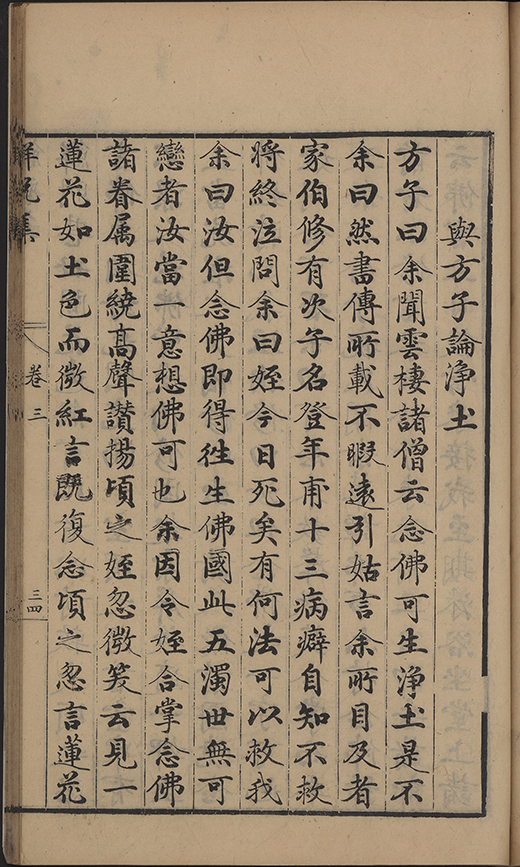 與方子論淨土
方子曰余聞雲棲諸僧云念佛可生淨土是不
余曰然書傳所載不暇遠引姑言余所目及者
家伯修有次子名登年甫十三病癖自知不救
將終泣問余曰姪今日死矣有何法可以救我
余曰汝但念佛即得徃生佛國此五濁世無可
戀者汝當一意想佛可也余因令姪合掌念佛
諸眷属圍繞髙聲讃揚頃之姪忽微笑云見一
蓮花如土色而微紅言既復念頃之忽言蓮花
卷三
三四